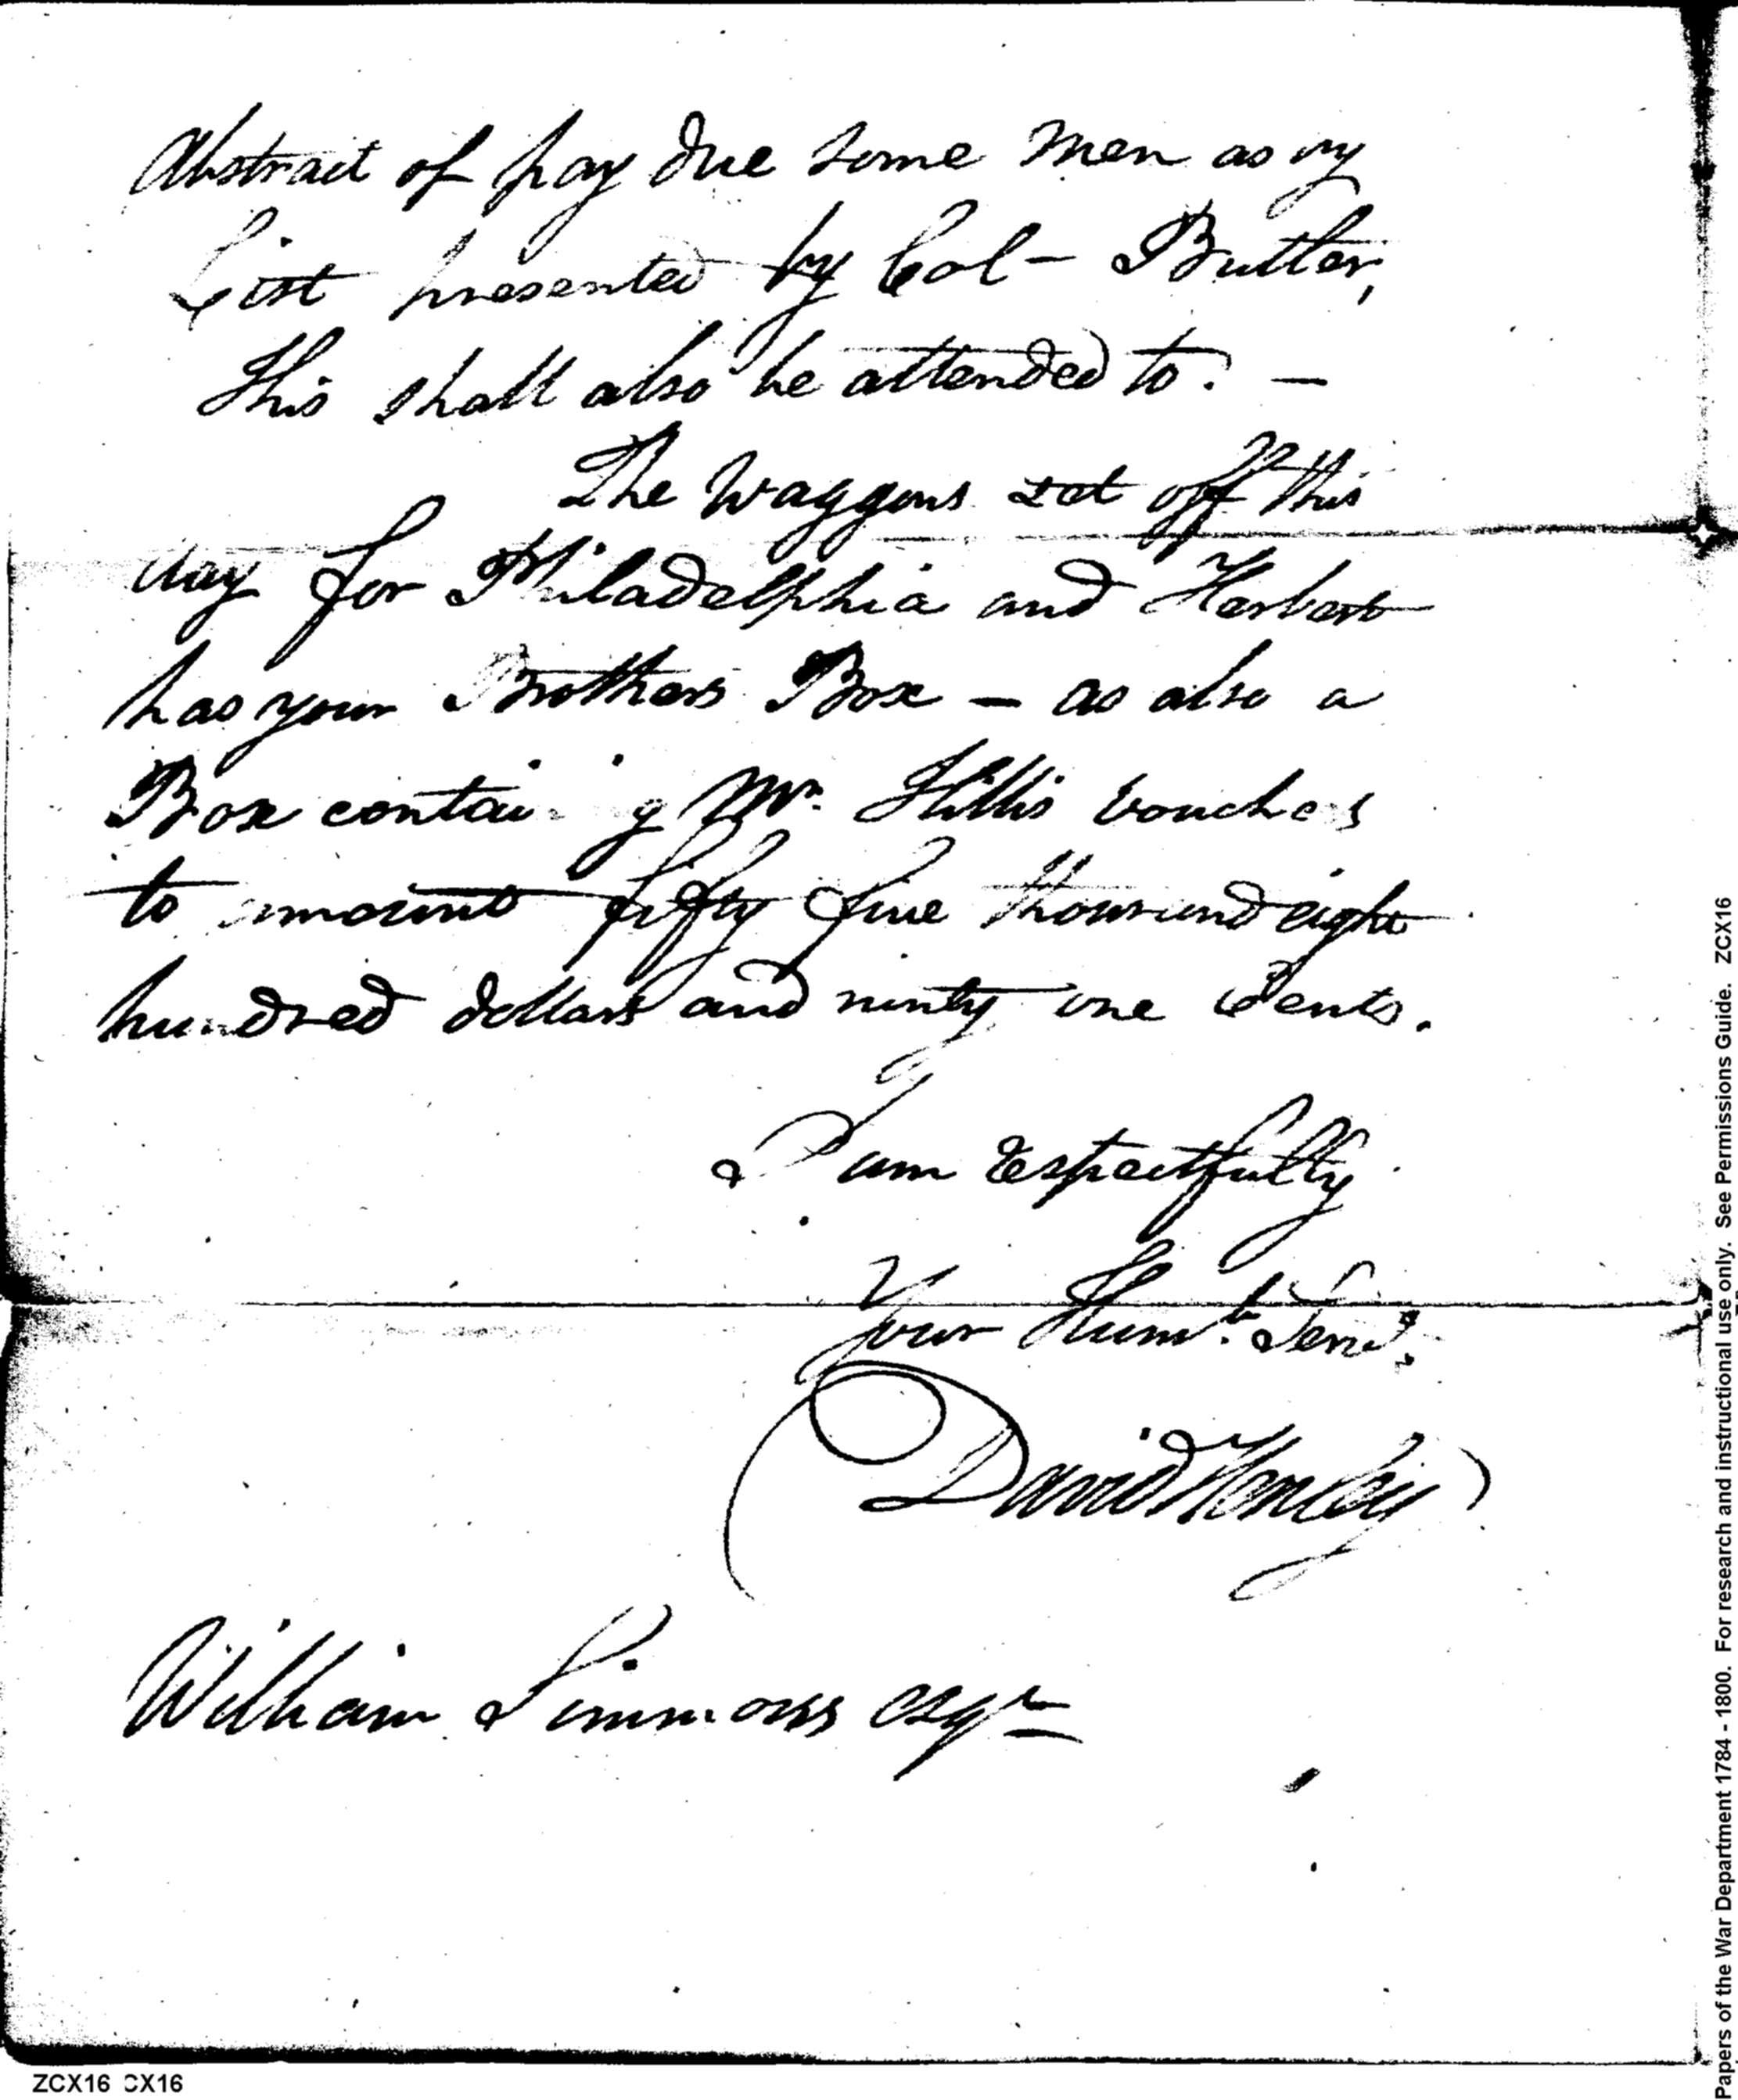 Abstract of pay due some men as py
List presented by Col- Butler,
This shall also be attended to. —
The Waggons set off this
day for Philadelphia and Herbert
has your Brothers Box — as also a
Box containg Mr. Hillis vouchers
to amount fifty five thousand eight
hundred dollars and ninty one Cents.
I am respectfully
Your Humb. Servt.
David Henley
William Simmons esqr
ZCX16 CX16
Papers of the War Department 1784 - 1800. For research and instructional use only. See Permissions Guide. ZCX16